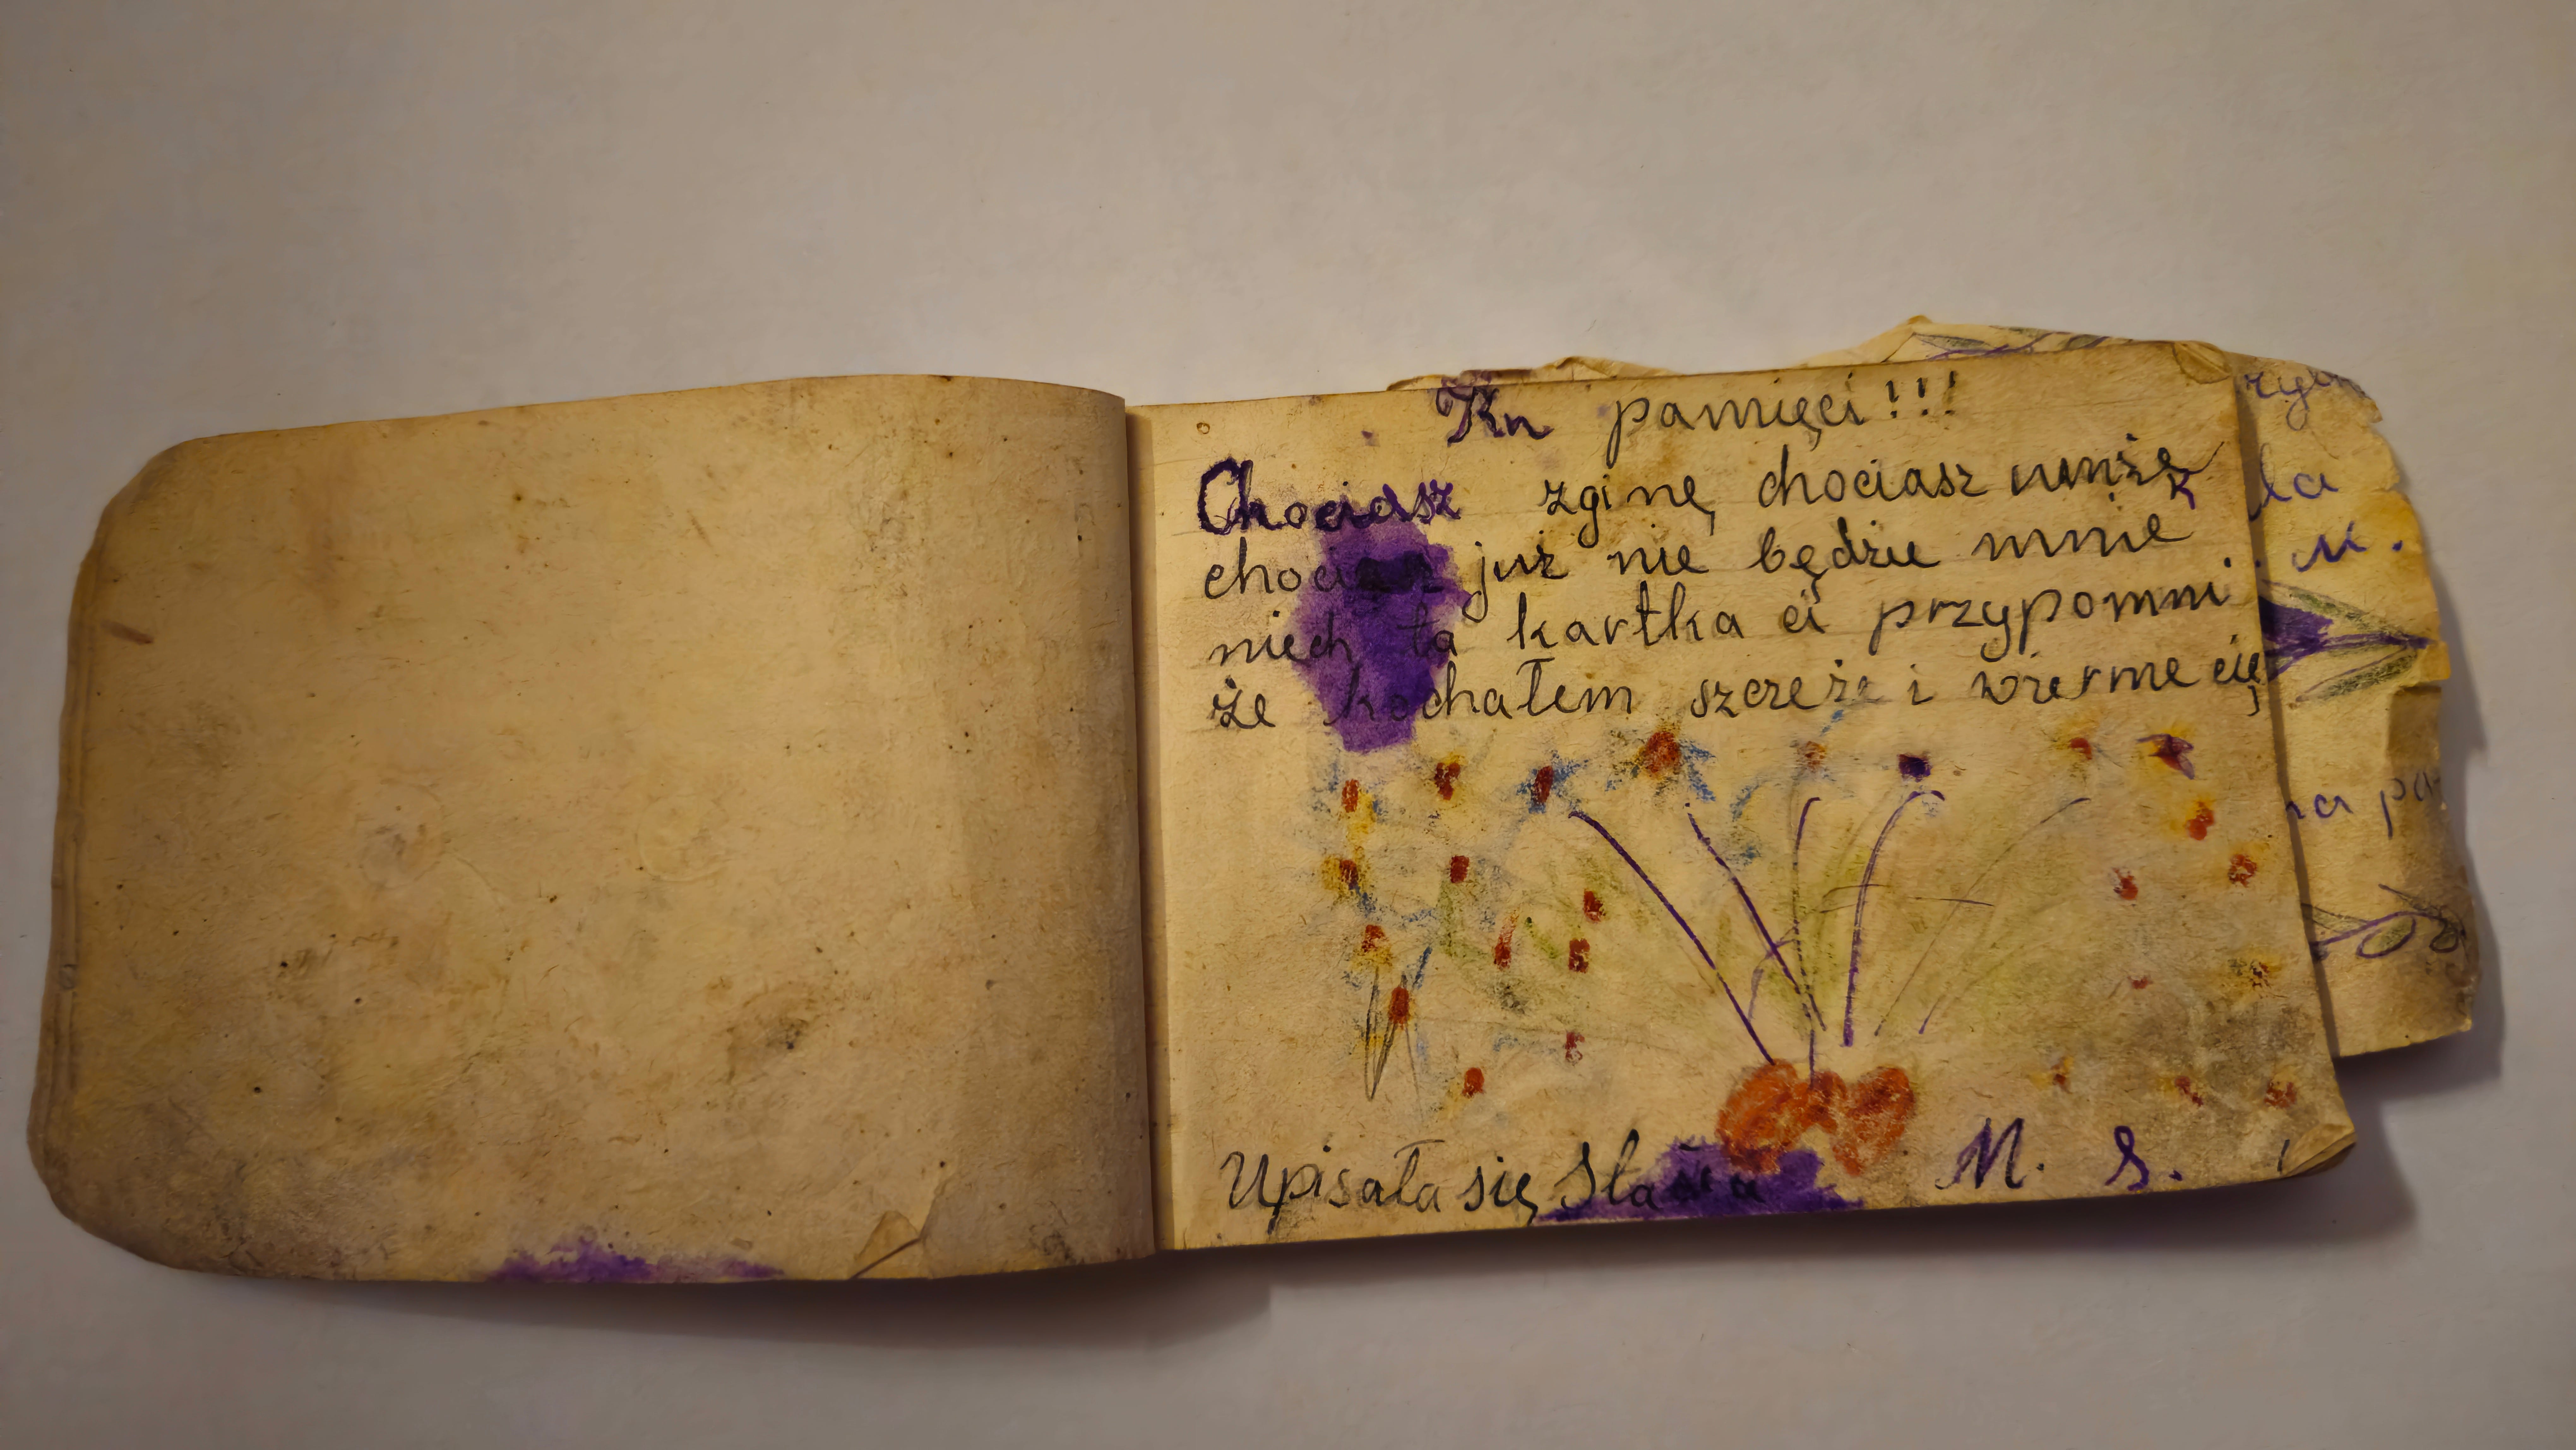 Ku pamięci!!!
Chociasz zginę chociasz umżę
chociasz już nie będzie mnie
niech ta kartka ci przypomni.
że kochałem szczeże i wiernie cię
Upisała się M. S.
la
. M.
na pa